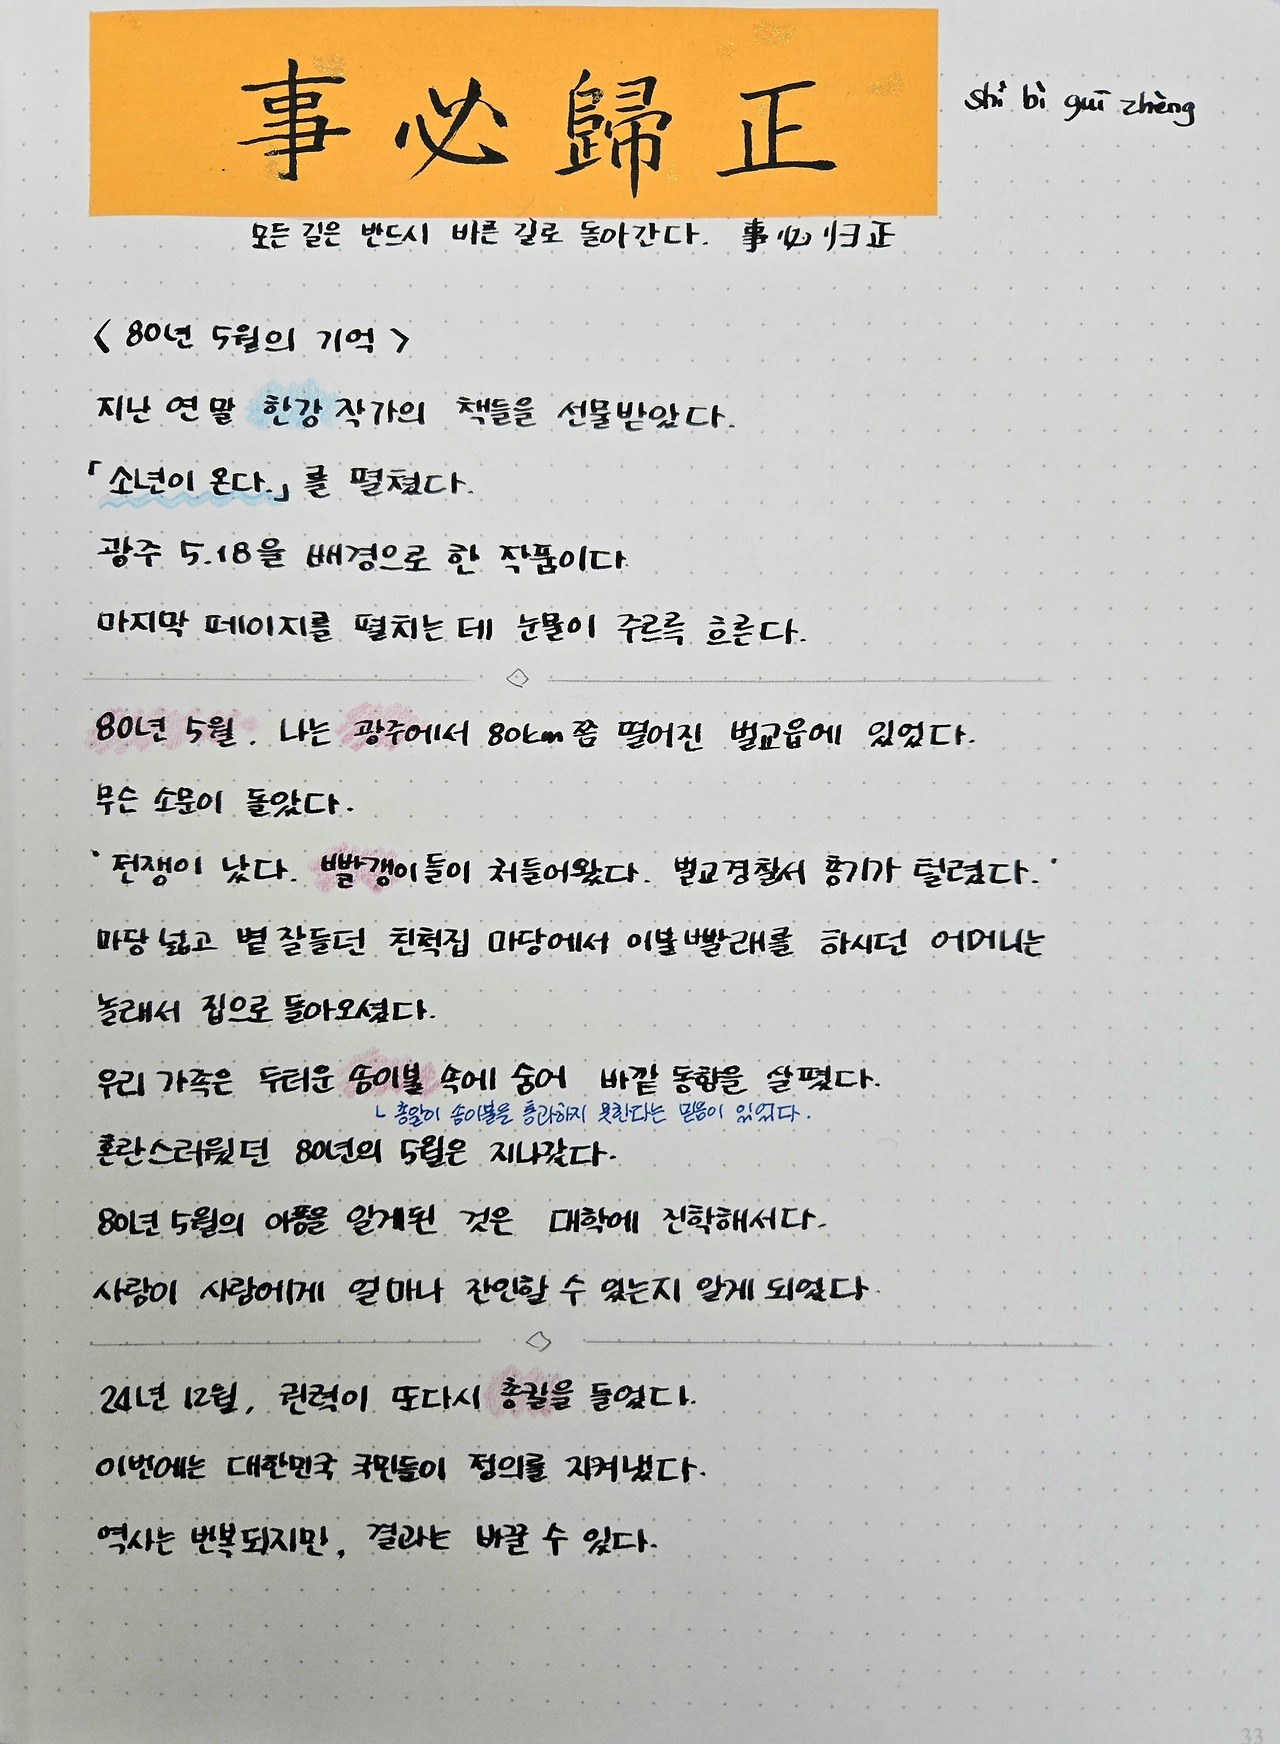 事必歸正
shì bì guī zhèng
모든 길은 반드시 바른 길로 돌아간다. 事必归正
< 80년 5월의 기억 >
지난 연말 한강 작가의 책들을 선물받았다.
「소년이 온다.」를 펼쳤다.
광주 5.18을 배경으로 한 작품이다
마지막 페이지를 펼치는 데 눈물이 주르륵 흐른다.
80년 5월. 나는 광주에서 80km쯤 떨어진 벌교읍에 있었다.
무슨 소문이 돌았다.
'전쟁이 났다. 빨갱이들이 처들어왔다. 벌교경찰서 총기가 털렸다.'
마당 넓고 볕 잘들던 친척집 마당에서 이불빨래를 하시던 어머니는
놀래서 집으로 돌아오셨다.
우리 가족은 두터운 솜이불 속에 숨어 바깥 동향을 살폈다.
ㄴ 총알이 솜이불을 통과하지 못한다는 믿음이 있었다.
혼란스러웠던 80년의 5월은 지나갔다.
80년 5월의 아픔을 알게된 것은 대학에 진학해서다.
사람이 사람에게 얼마나 잔인할 수 있는지 알게 되었다.
24년 12월, 권력이 또다시 총칼을 들었다.
이번에는 대한민국 국민들이 정의를 지켜냈다.
역사는 반복되지만, 결과는 바꿀 수 있다.
33